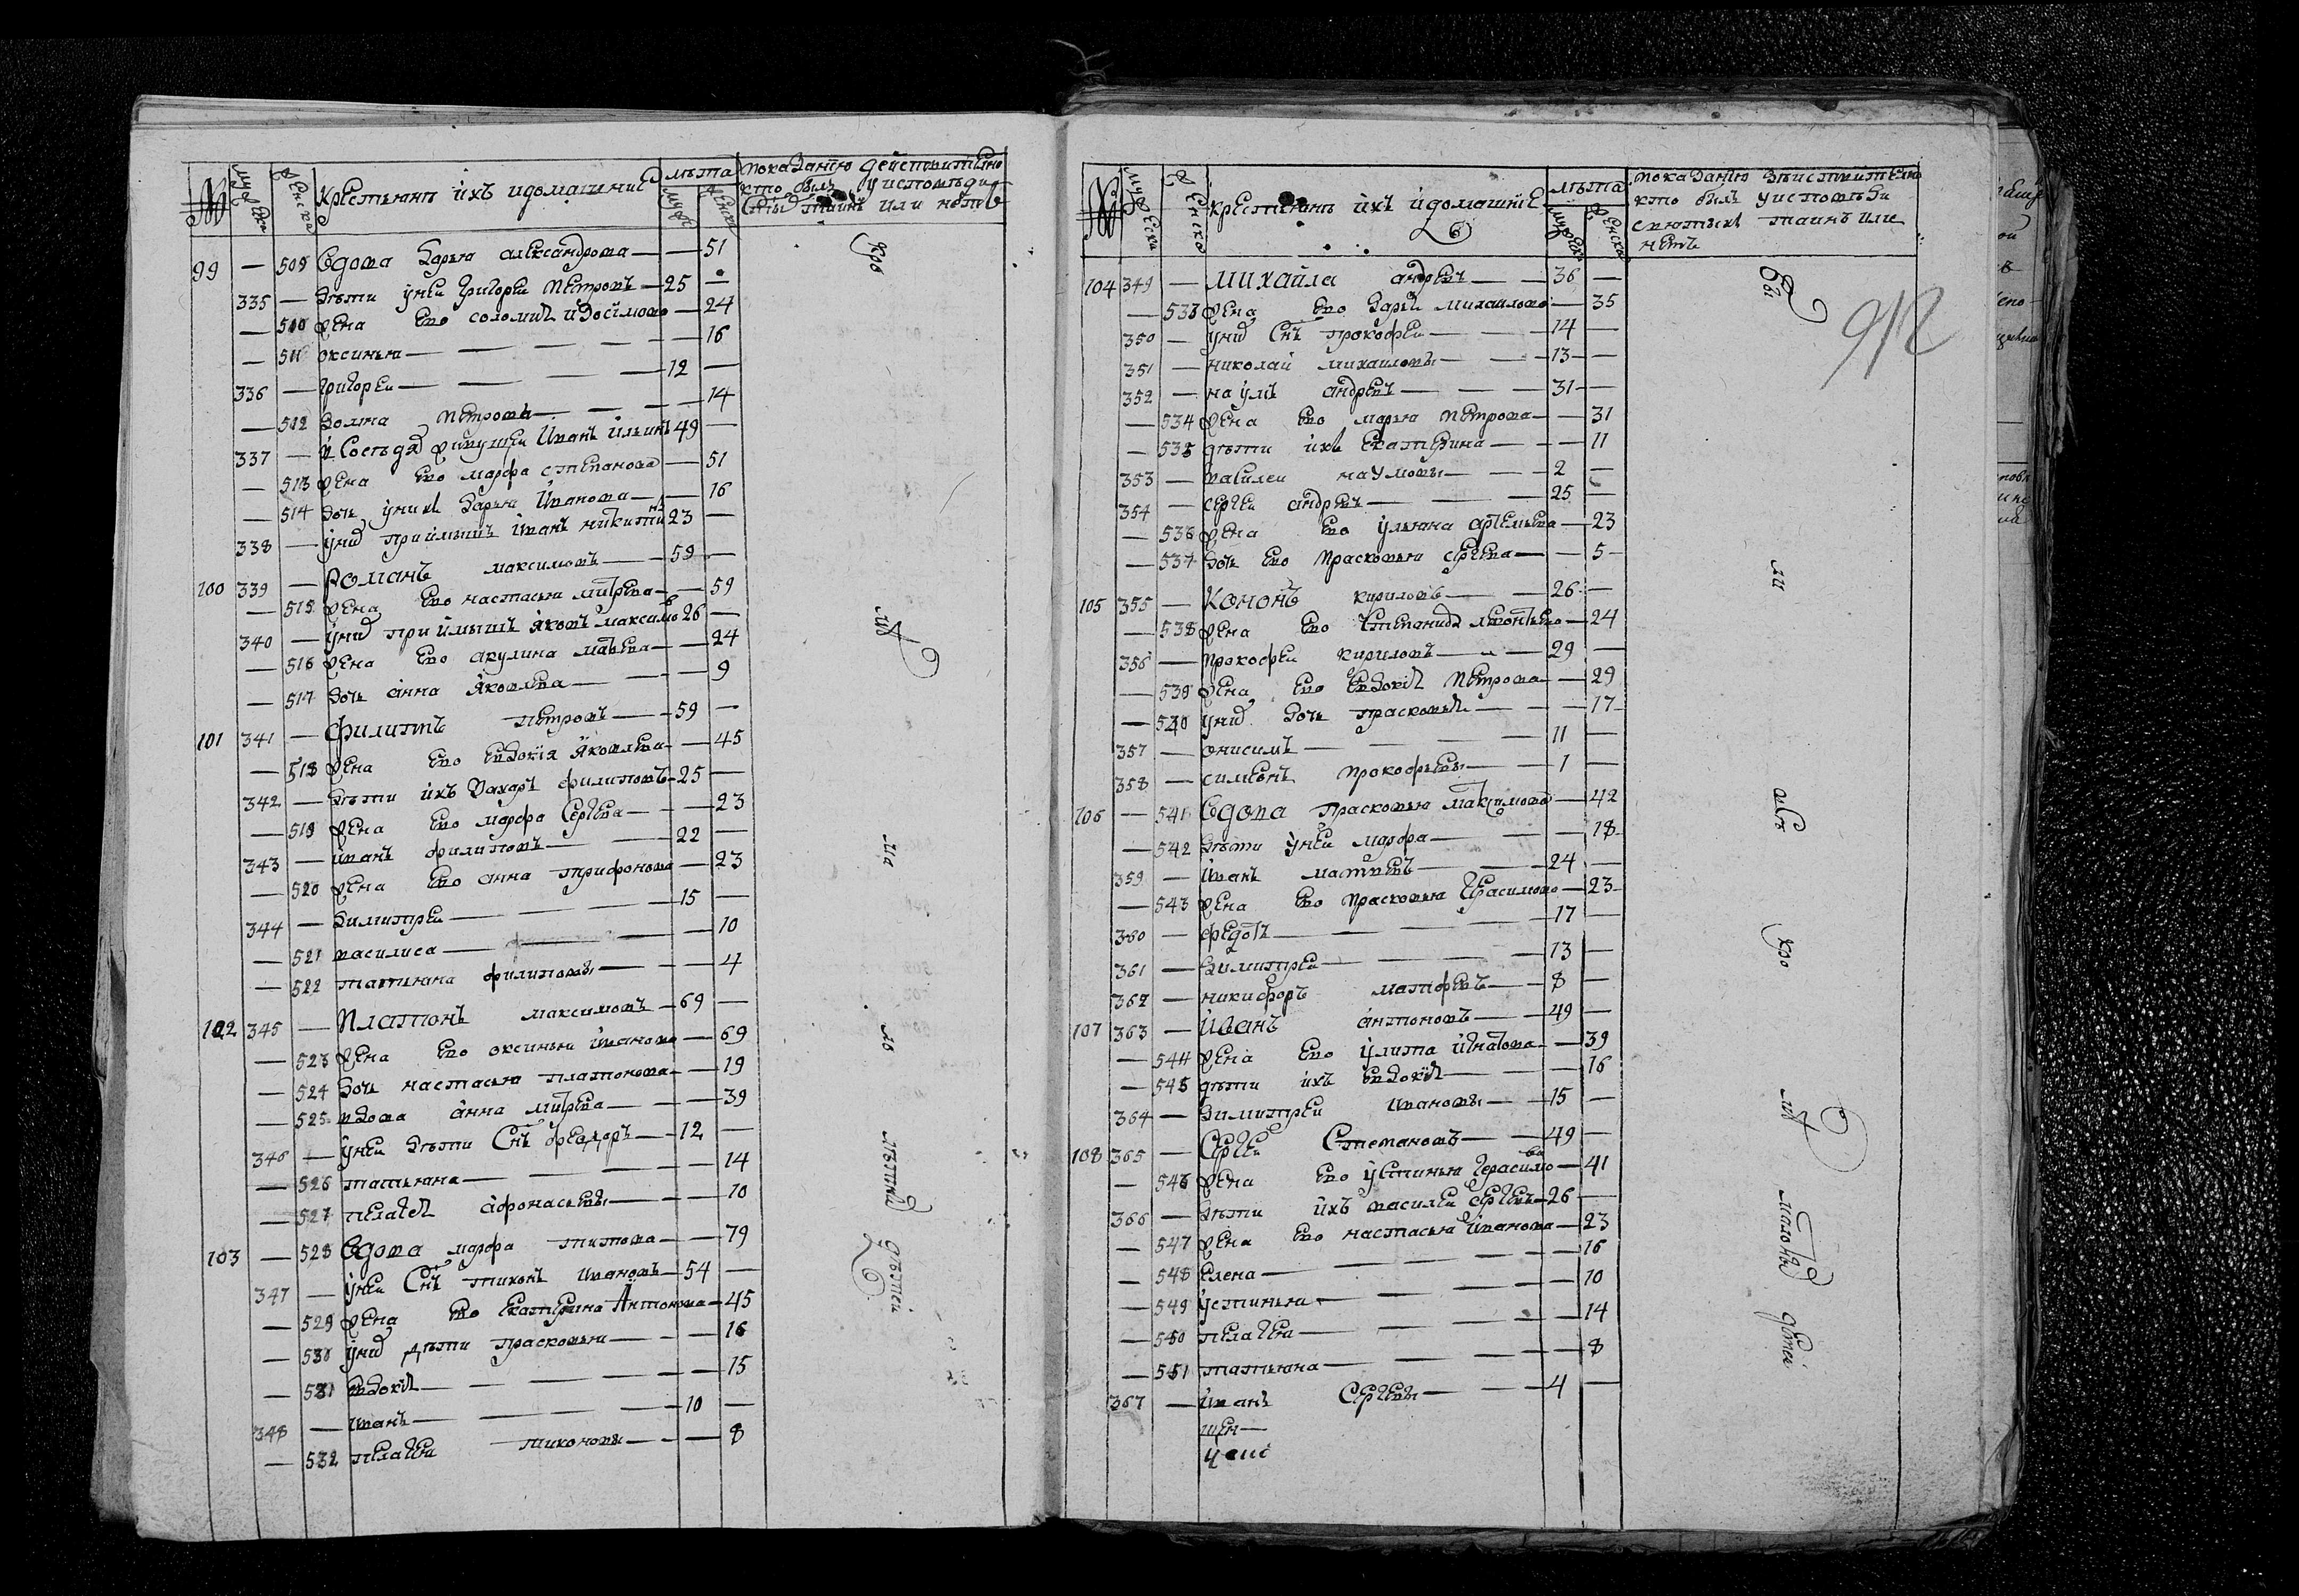 крестьянъ ихъ идомашние
лѣта
муж женск
99 — 509 Вдова дарья александрова — — 51
335 — дѣти унеи григореи петровъ — 25 —
— 510 жена ево соломия изосимова — 24
— 511 оксинья — — 16
336 — григореи — 12 —
— 512 домна петровы — — 14
337 — и соседъ живущеи иванъ ильинъ 49 —
— 513 жена ево марфа степанова — 51
— 514 дочь унихъ дарья иванова — — 16
338 — унихъ приимышъ иванъ никитинъ 23 —
100 339 — Романъ максимовъ — 59 —
— 515 жена ево настасья митрева — 59
340 — унихъ приимышъ яковъ максимовъ 26 —
— 516 жена ево акулина матвева — — 24
— 517 дочь анна яковлева — — 9
101 341 — Филиппъ петровъ — 59 —
— 518 жена ево евдокия яковлева — 45
342 — дѣти ихъ захаръ филиповъ — 25 —
— 519 жена ево марфа сергева — — 23
343 — иванъ филиповъ — 22 —
— 520 жена ево анна трифонова — 23
344 — димитреи — 15 —
— 521 василиса — — 10
— 522 татьяна филиповы — — 4
102 345 — Платонъ максимовъ — 69 —
— 523 жена ево оксинья иванова — 69
— 524 дочь настасья платонова — — 19
— 525 вдова анна митрева — — 39
346 — унеи дѣти снъ феддоръ — 12 —
— 526 татьяна — — 14
— 527 пелагея афонасьевы — — 10
103 — 528 Вдова марфа титова — — 79
347 — унеи Снъ тихонъ ивановъ — 54 —
— 529 жена ево екатерина Антонова — 45
— 530 унихъ дѣти прасковья — — 16
— 531 евдокия — — 15
348 — иванъ — 10 —
— 532 пелагея тихоновы — — 8
кро
мѣ
ма
ло
лѣтнихъ
дѣтей
крестьянъ ихъ идомашние
лѣта
муж женска
показанию дѣиствительно
кто былъ уисповѣди
святыхъ таинъ или
нетъ
104 349 — михаила андревъ — 36 —
— 533 жена ево дарья михаилова — 35
350 — унихъ Снъ прокофеи — 14 —
351 — николаи михаиловы — 13 —
352 — наумъ андревъ — 31 —
— 534 жена ево марья петрова — — 31
— 535 дѣти ихъ екатерина — — 11
353 — василеи наумовы — 2 —
354 — сергеи андревъ — 25 —
— 536 жена ево ульяна артемьева — 23
— 537 дочь ево прасковья сергева — — 5
105 355 — Кононъ кириловъ — 26 —
— 538 жена ево степанида леонтьева — 24
356 — прокофеи кириловъ — 29 —
— 539 жена ево евдокия петрова — 29
— 540 унихъ дочь прасковья — — 17
357 — онисимъ — 11 —
358 — симионъ прокофьевы — 1 —
106 — 541 Вдова прасковья максимова — 42
— 542 дѣти унеи марфа — — 18
359 — иванъ матвевъ — 24 —
— 543 жена ево прасковья герасимова — 23
360 — федотъ — 17 —
361 — димитреи — 13 —
362 — никифоръ матфевъ — 8 —
107 363 — Иванъ антоновъ — 49 —
— 544 жена ево улита игнатова — 39
— 545 дѣти ихъ евдокия — — 16
364 — димитреи ивановы — 15 —
108 365 — Сергеи Степановъ — 49 —
— 546 жена ево устинья герасимова — 41
366 — дѣти ихъ василеи сергевъ — 26 —
— 547 жена ево настасья иванова — 23
— 548 елена — — 16
— 549 устинья — — 10
— 550 пелагея — — 14
— 551 татьяна — — 8
367 — иванъ Сергевы — 4 —
бы
ли
всѣ
кро
мѣ
малыхъ
детеи